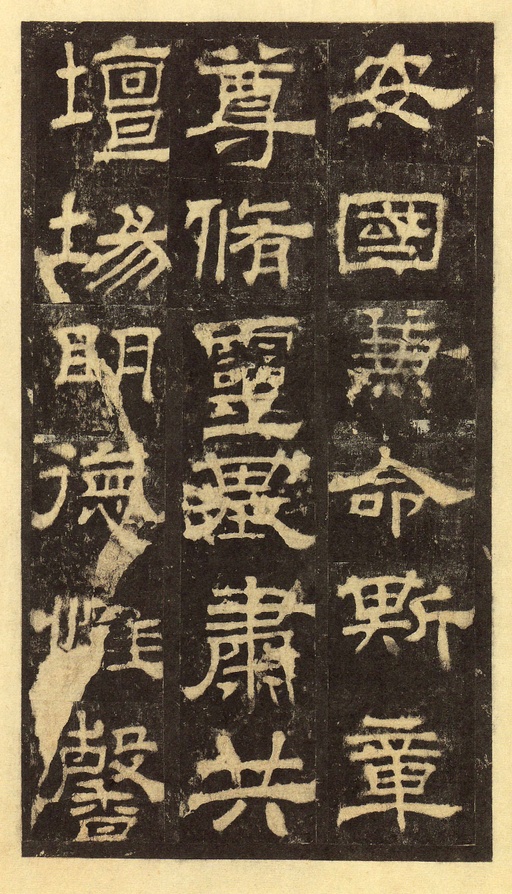 安國兼命斯章
尊脩靈基肅共
壇場眀德惟馨